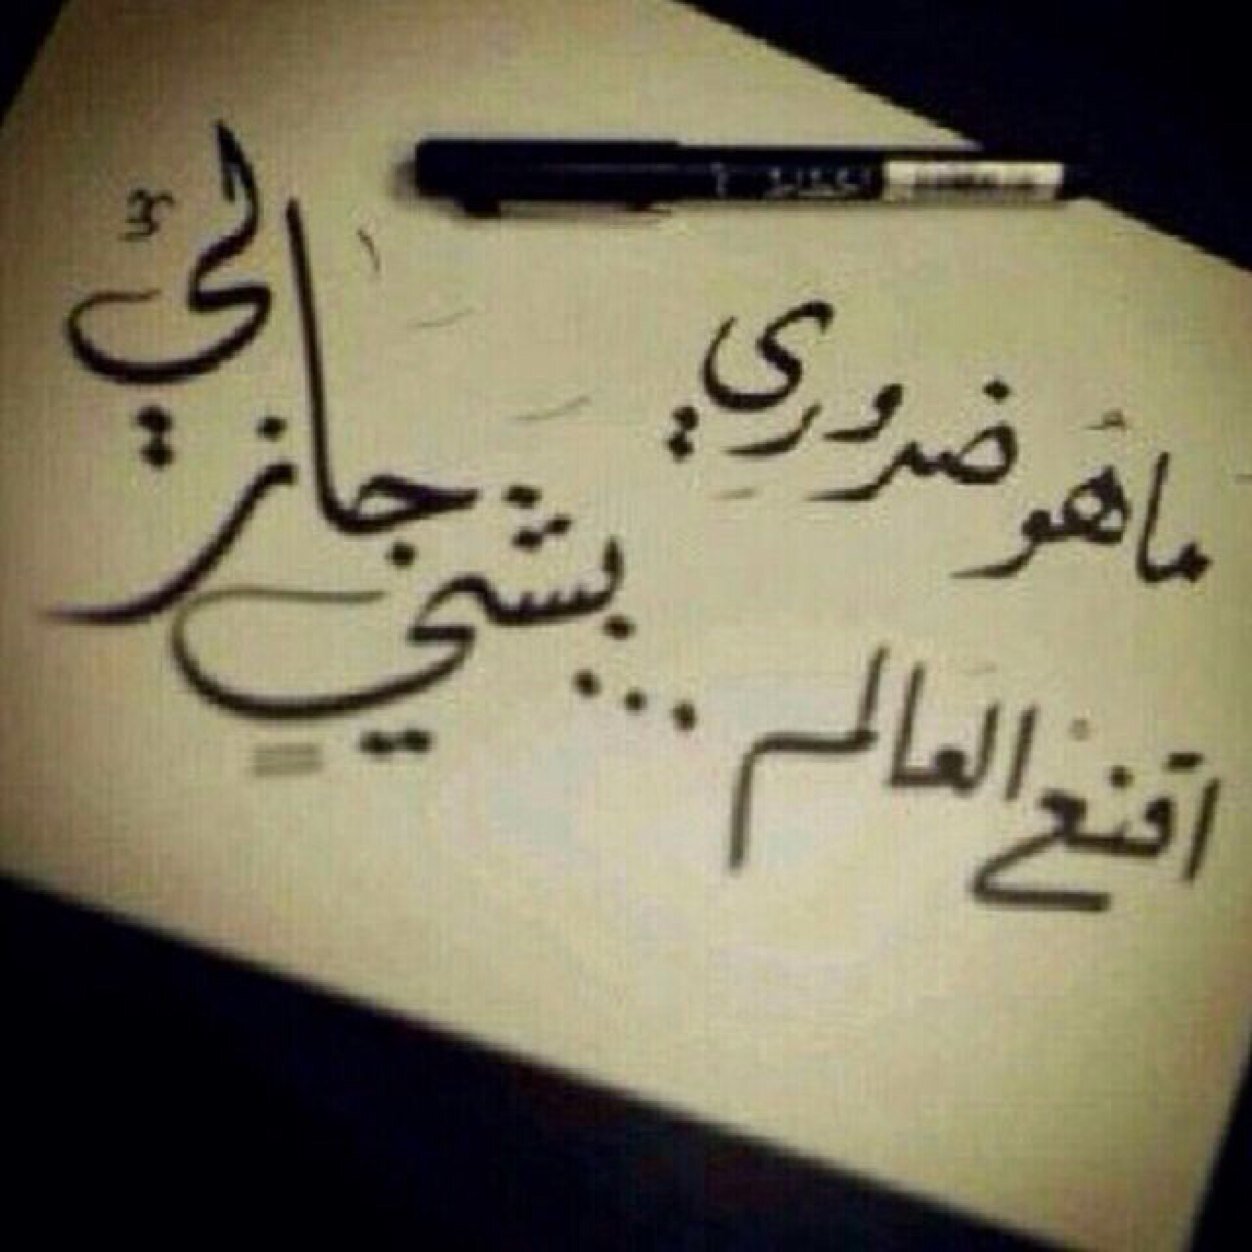 ما هو ضروري
اقنع العالم
... بشي
جاز لي